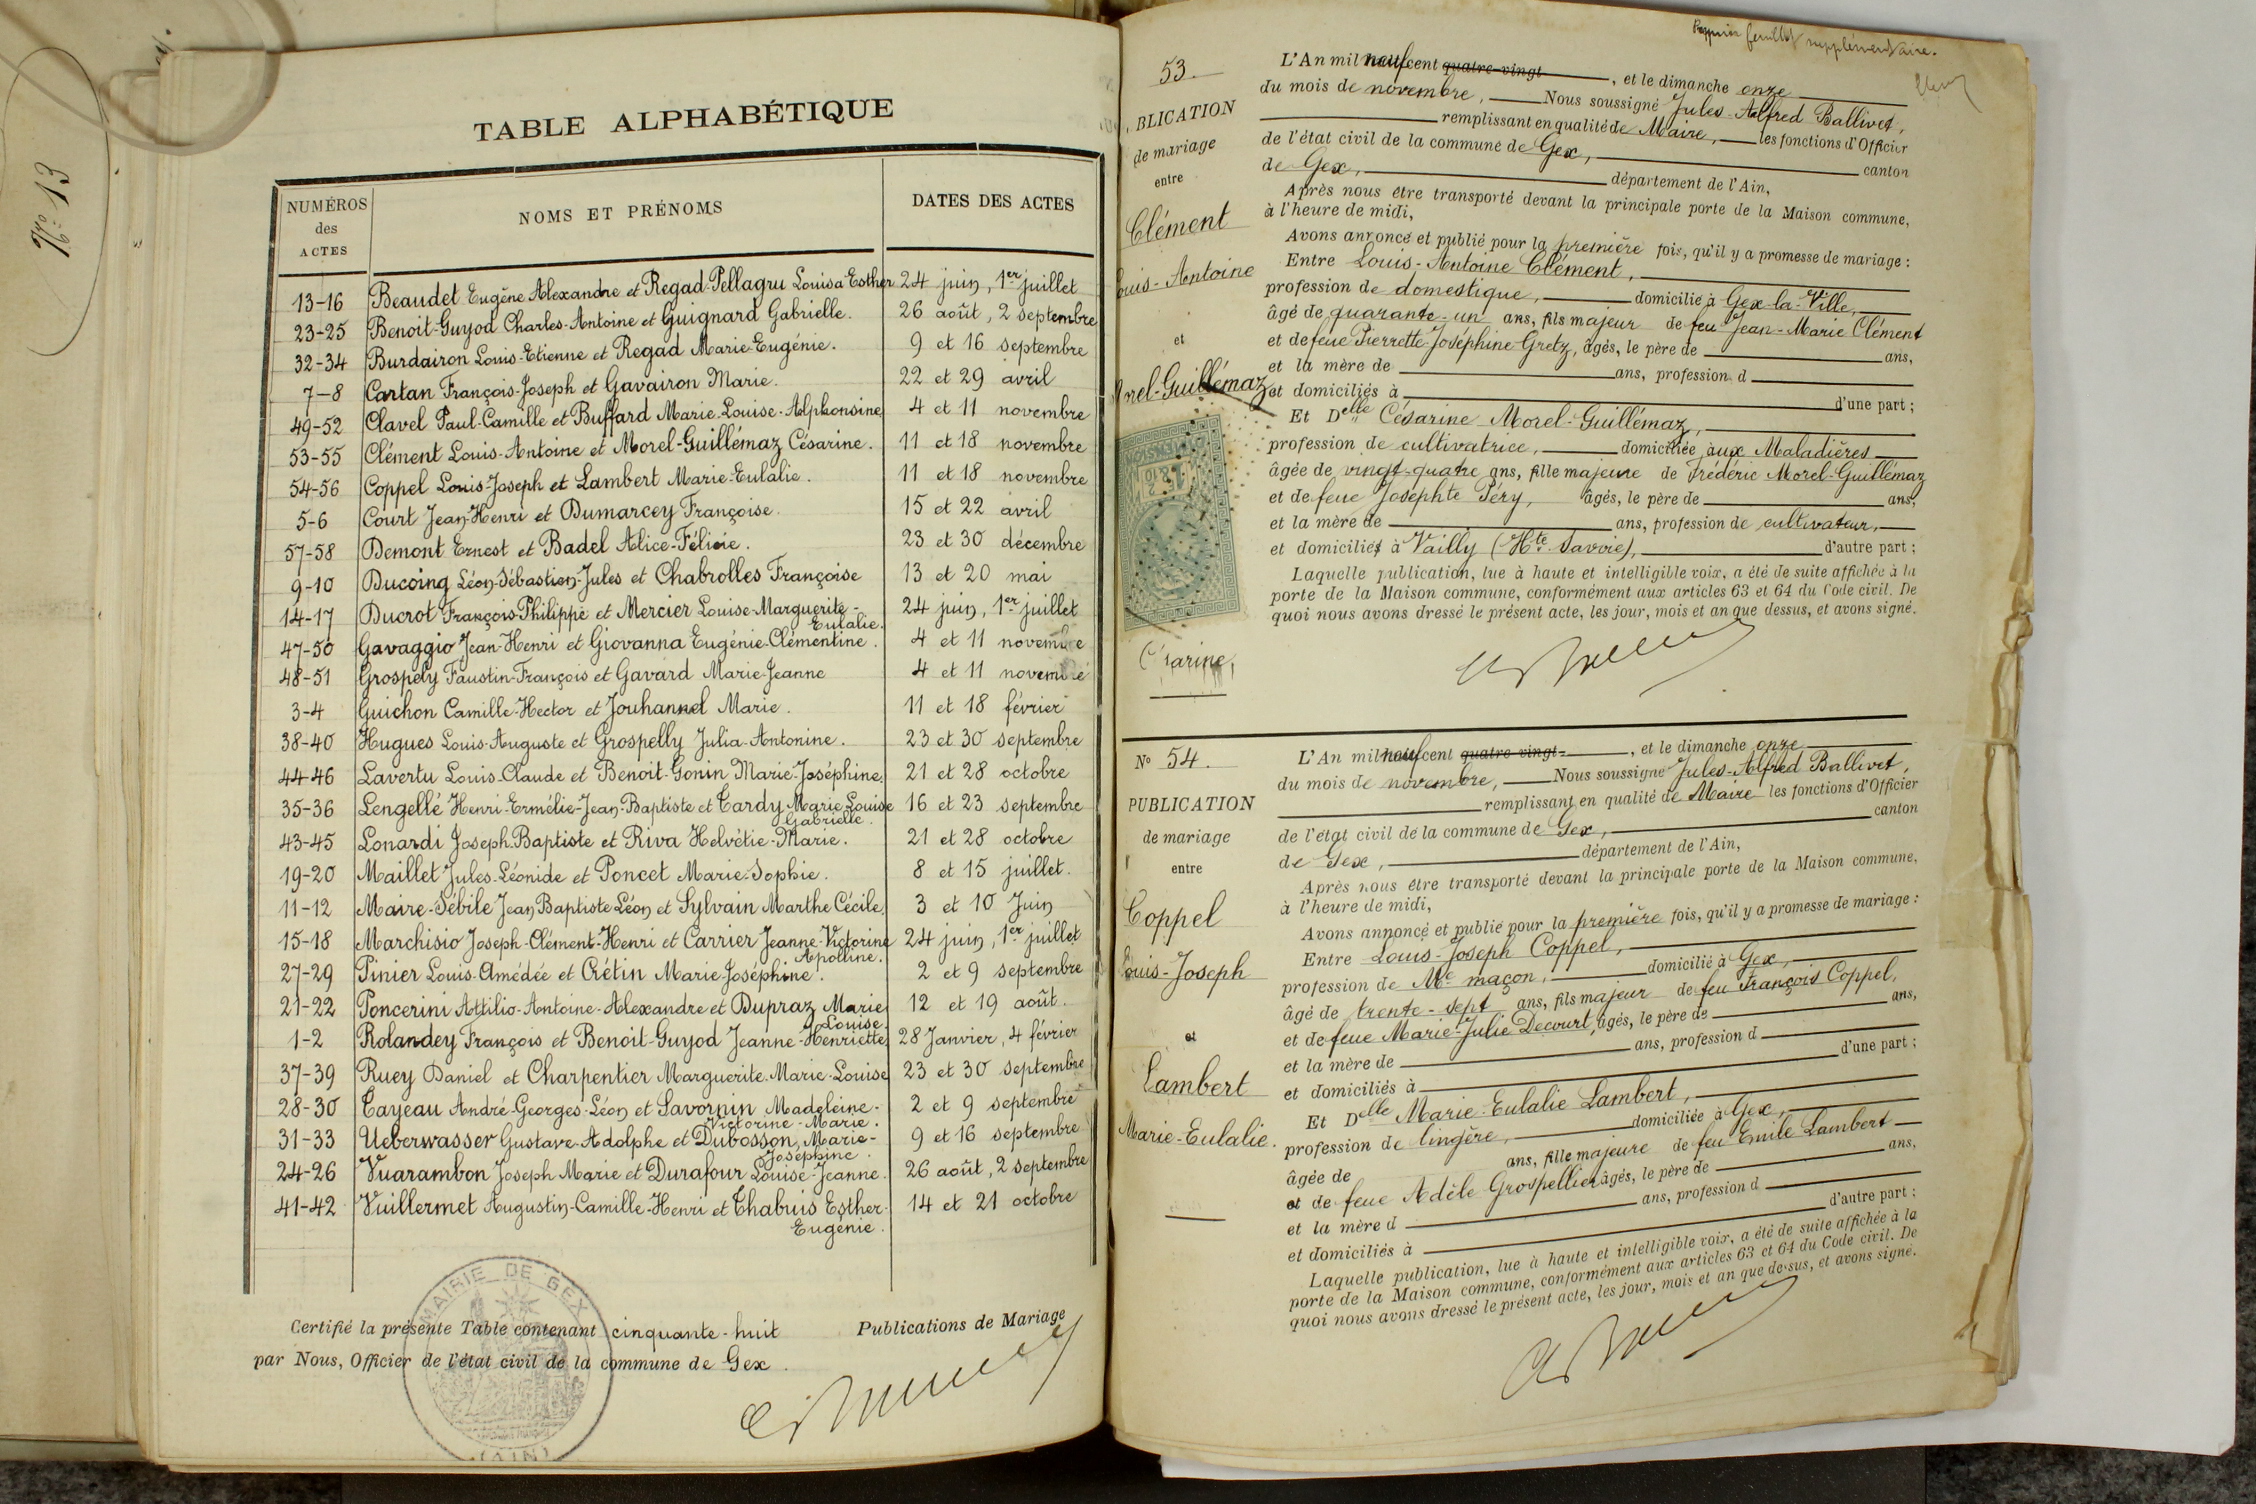 N.º 13
TABLE ALPHABÉTIQUE
NUMÉROS des ACTES
NOMS ET PRÉNOMS
DATES DES ACTES
13-16 Beaudet Eugène Alexandre et Regad-Pellagru Louisa-Esther 24 juin, 1er juillet
23-25 Benoit-Guyod Charles-Antoine et Guignard Gabrielle. 26 août, 2 septembre
32-34 Burdairon Louis-Etienne et Regad Marie-Eugénie. 9 et 16 septembre
7-8 Cartan François-Joseph et Gavairon Marie. 22 et 29 avril
49-52 Clavel Paul-Camille et Buffard Marie-Louise-Alphonsine 4 et 11 novembre
53-55 Clément Louis-Antoine et Morel-Guillémaz Césarine. 11 et 18 novembre
54-56 Coppel Louis-Joseph et Lambert Marie-Eulalie. 11 et 18 novembre
5-6 Court Jean-Henri et Dumarcey Françoise. 15 et 22 avril
57-58 Demont Ernest et Badel Alice-Félicie. 23 et 30 décembre
9-10 Ducoing Léon-Sébastien-Jules et Chabrolles Françoise 13 et 20 mai
14-17 Ducrot François-Philippe et Mercier Louise-Marguerite- 24 juin, 1er juillet
Eulalie.
47-50 Gavaggio Jean-Henri et Giovanna Eugénie-Clémentine. 4 et 11 novembre
48-51 Grospely Faustin-François et Gavard Marie-Jeanne 4 et 11 novembre
3-4 Guichon Camille-Hector et Jouhannel Marie. 11 et 18 février
38-40 Hugues Louis-Auguste et Grospelly Julia-Antonine. 23 et 30 septembre
44-46 Lavertu Louis-Claude et Benoit-Gonin Marie-Joséphine 21 et 28 octobre
35-36 Lengellé Henri-Ermélie-Jean-Baptiste et Tardy Marie Louise 16 et 23 septembre
Gabrielle.
43-45 Lonardi Joseph-Baptiste et Riva Helvétie-Marie. 21 et 28 octobre
19-20 Maillet Jules-Léonide et Poncet Marie-Sophie. 8 et 15 juillet.
11-12 Maire-Sébile Jean Baptiste Léon et Sylvain Marthe Cécile. 3 et 10 Juin
15-18 Marchisio Joseph-Clément-Henri et Carrier Jeanne-Victorine 24 juin, 1er juillet
Apolline.
27-29 Pinier Louis-Amédée et Crétin Marie-Joséphine. 2 et 9 septembre
21-22 Poncerini Attilio-Antoine-Alexandre et Dupraz Marie 12 et 19 août.
Louise.
1-2 Rolandey François et Benoit-Guyod Jeanne-Henriette 28 Janvier, 4 février
37-39 Ruey Daniel et Charpentier Marguerite-Marie-Louise 23 et 30 septembre
28-30 Tayeau André-Georges-Léon et Savornin Madeleine- 2 et 9 septembre
Victorine-Marie.
31-33 Ueberwasser Gustave-Adolphe et Dubosson, Marie- 9 et 16 septembre
Joséphine.
24-26 Vuarambon Joseph Marie et Durafour Louise-Jeanne. 26 août, 2 septembre
41-42 Vuillermet Augustin-Camille-Henri et Chabuis Esther- 14 et 21 octobre
Eugénie.
Certifié la présente Table contenant cinquante-huit Publications de Mariage
par Nous, Officier de l'état civil de la commune de Gex.
MAIRIE DE GEX
(AIN)
feuillet supplémentaire.
53.
BLICATION
de mariage
entre
Clément
ouis-Antoine
et
rel-Guillémaz
Césarine,
L'An mil neuf cent quatre-vingt, et le dimanche onze
du mois de novembre, Nous soussigné Jules-Alfred Ballivet,
remplissant en qualité de Maire, les fonctions d'Officier
de l'état civil de la commune de Gex, canton
de Gex, département de l'Ain,
Après nous être transporté devant la principale porte de la Maison commune,
à l'heure de midi,
Avons annoncé et publié pour la première fois, qu'il y a promesse de mariage :
Entre Louis-Antoine Clément,
profession de domestique, domicilié à Gex-la-Ville,
âgé de quarante-un ans, fils majeur de feu Jean-Marie Clément
et de feue Pierrette-Joséphine Gretz, âgés, le père de ans,
et la mère de ans, profession d
et domiciliés à d'une part ;
Et Delle Césarine Morel-Guillémaz,
profession de cultivatrice, domiciliée aux Maladières
âgée de vingt-quatre ans, fille majeure de Frédéric Morel-Guillémaz
et de feue Josephte Péry, âgés, le père de ans,
et la mère de ans, profession de cultivateur,
et domiciliés à Vailly (Hte-Savoie), d'autre part ;
Laquelle publication, lue à haute et intelligible voix, a été de suite affichée à la
porte de la Maison commune, conformément aux articles 63 et 64 du Code civil. De
quoi nous avons dressé le présent acte, les jour, mois et an que dessus, et avons signé.
No 54.
PUBLICATION
de mariage
entre
Coppel
ouis-Joseph
et
Lambert
Marie-Eulalie.
L'An mil neuf cent quatre-vingt-, et le dimanche onze
du mois de novembre, Nous soussigné Jules-Alfred Ballivet,
remplissant en qualité de Maire les fonctions d'Officier
de l'état civil de la commune de Gex, canton
de Gex, département de l'Ain,
Après nous être transporté devant la principale porte de la Maison commune,
à l'heure de midi,
Avons annoncé et publié pour la première fois, qu'il y a promesse de mariage :
Entre Louis-Joseph Coppel,
profession de Me maçon, domicilié à Gex,
âgé de trente-sept ans, fils majeur de feu François Coppel,
et de feue Marie-Julie Decourt, âgés, le père de ans,
et la mère de ans, profession d
et domiciliés à d'une part ;
Et Delle Marie-Eulalie Lambert,
profession de lingère, domiciliée à Gex,
âgée de ans, fille majeure de feu Emile Lambert
et de feue Adèle Grospellier âgés, le père de ans,
et la mère d ans, profession d
et domiciliés à d'autre part ;
Laquelle publication, lue à haute et intelligible voix, a été de suite affichée à la
porte de la Maison commune, conformément aux articles 63 et 64 du Code civil. De
quoi nous avons dressé le présent acte, les jour, mois et an que dessus, et avons signé.